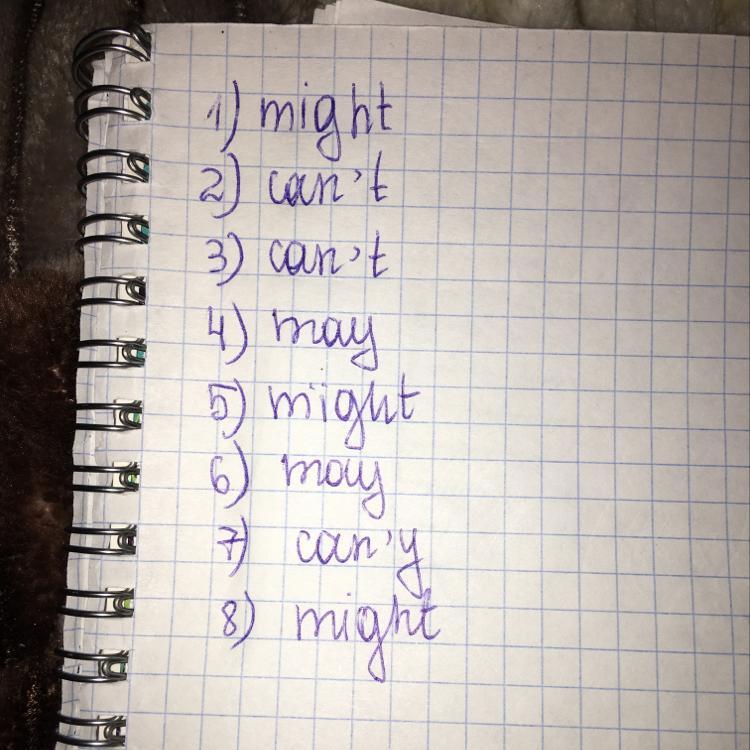 1) might
2) can't
3) can't
4) may
5) might
6) may
7) can'y
8) might